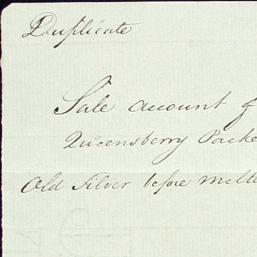 Duplicate
Sale account of
Queensberry Packe
Old Silver before melte